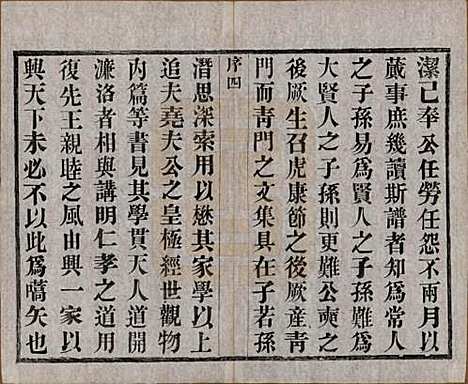 潔己奉公任勞任怨不兩月以
蕆事庶幾讀斯譜者知為常人
之子孫易為賢人之子孫難為
大賢人之子孫則更難公奭之
後厥生召虎康節之後厥產青
門而青門之文集具在子若孫
序四
潛思深索用以懋其家學以上
追夫堯夫公之皇極經世觀物
內篇等書見其學貫天人道開
濂洛者相與講明仁孝之道用
復先王親睦之風由興一家以
興天下未必不以此為嚆矢也